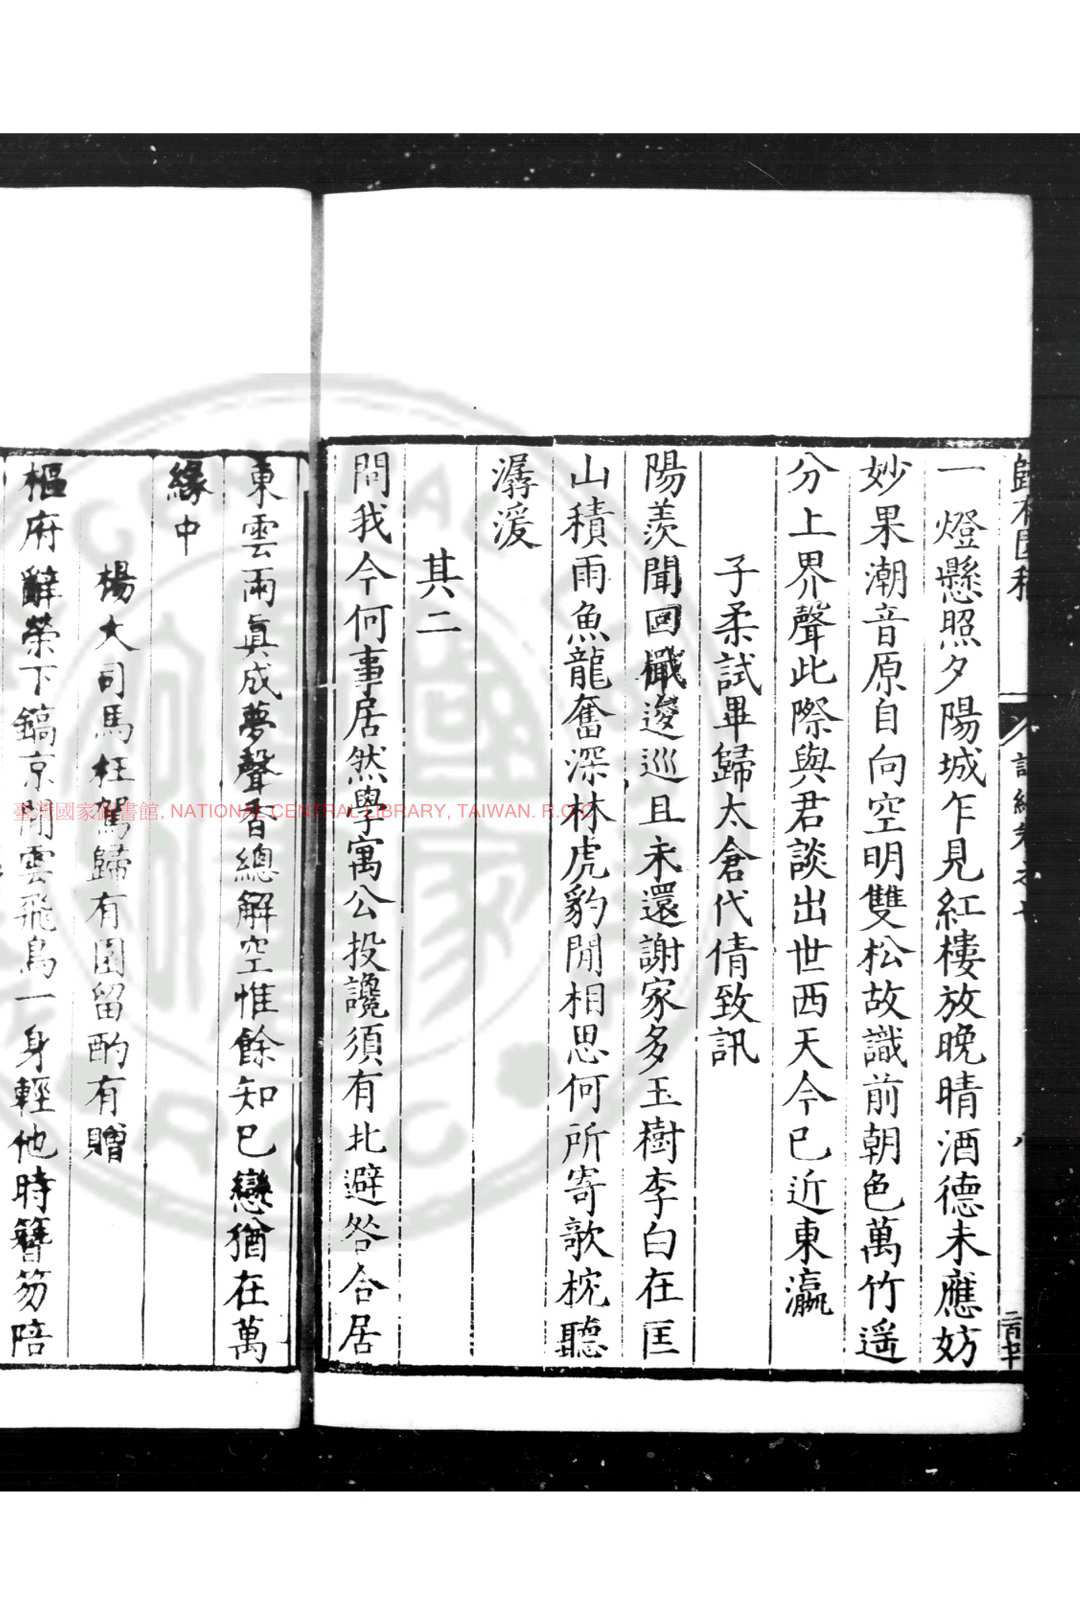 一燈懸照夕陽城乍見紅樓放晚晴酒德未應妨
妙果潮音原自向空明雙松故識前朝色萬竹遥
分上界聲此際與君談出世西天今已近東瀛
子柔試畢歸太倉代倩致訊
陽羨聞回檝逡巡且未還謝家多玉樹李白在匡
山積雨魚龍奮深林虎豹閒相思何所寄歌枕聽
潺湲
其二
問我今何事居然學寓公投讒須有北避咎合居
東雲雨眞成夢聲香總解空惟餘知已戀猶在萬
緣中
楊大司馬枉駕歸有園留酌有贈
樞府辭榮下鎬京閒雲飛鳥一身輕他時簪笏陪
歸有園稿
詩編卷之七
八
臺灣國家圖書館, NATIONAL CENTRAL LIBRARY, TAIWAN. R.O.C